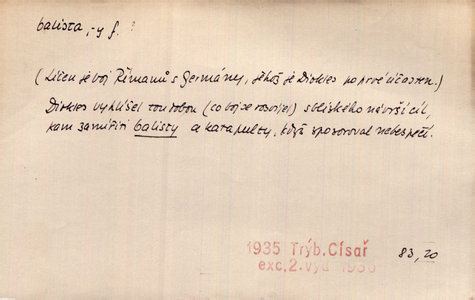 balista, -y f. ?
(Líčen je boj Římanů s Germány, jehož je Diokles po prvé účasten.)
Diokles vyhlížel tou dobou (co boj se rozvíjel) s blízkého návrší cíl,
kam zamířiti balisty a katapulty, když zpozoroval nebezpečí.
1935 Trýb. Císař
exc. 2. vyd 1936
83, 20